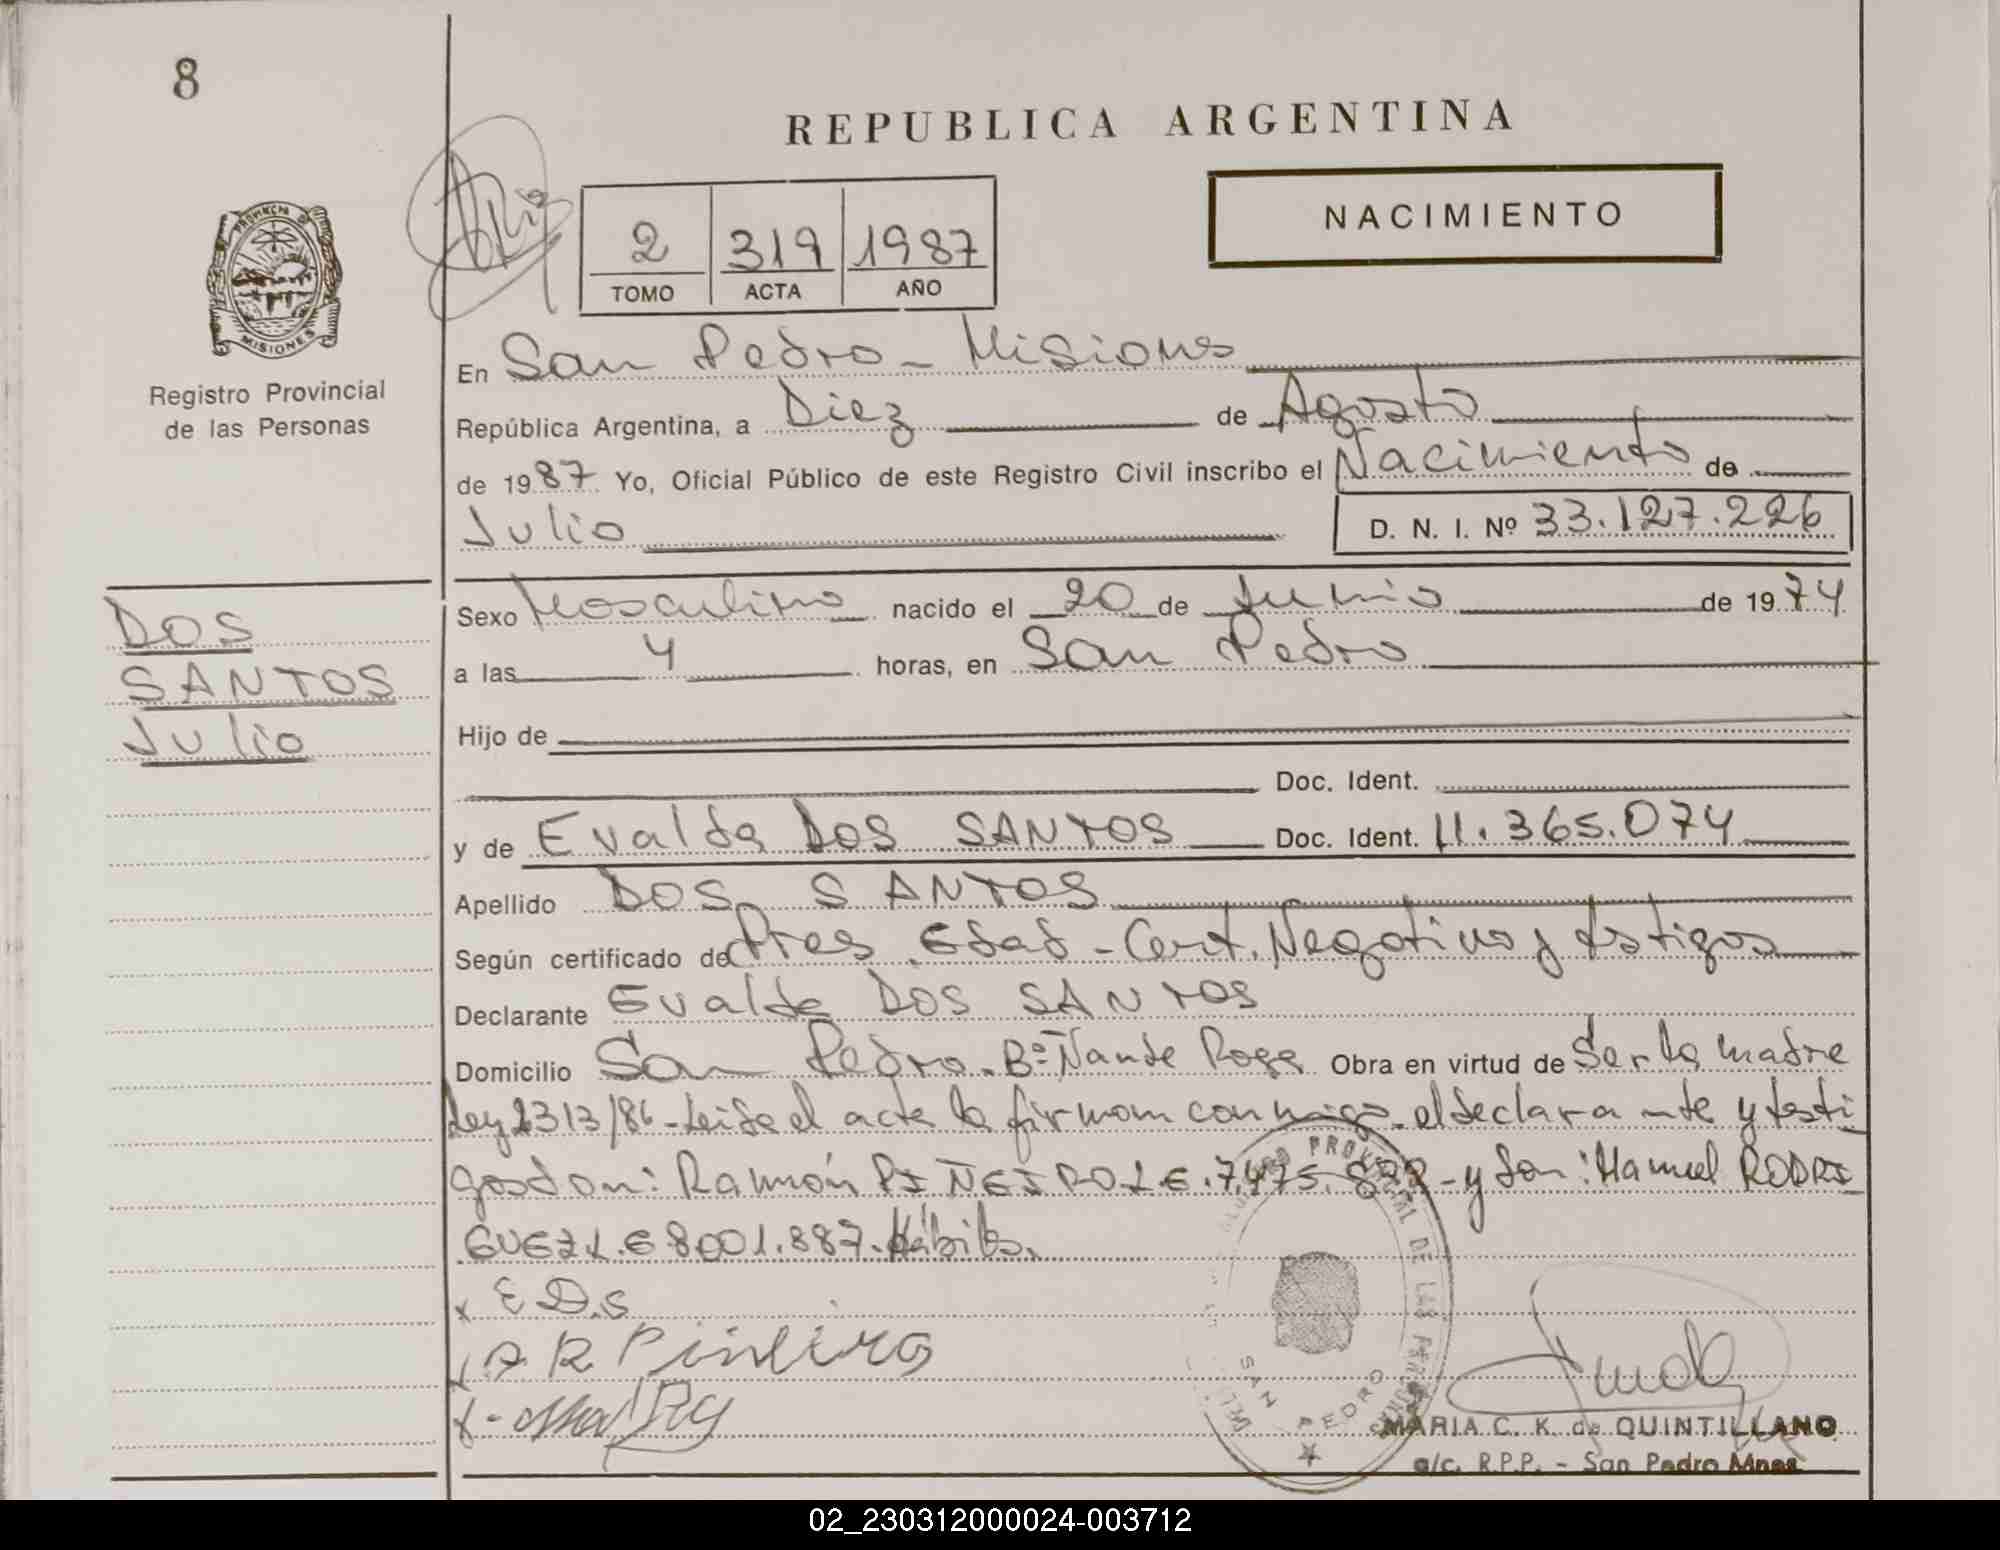 8
REPUBLICA ARGENTINA
NACIMIENTO
2 319 1987
TOMO ACTA AÑO
PROVINCIA D
MISIONES
Registro Provincial
de las Personas
En San Pedro - Misiones
República Argentina, a Diez de Agosto
de 1987 Yo, Oficial Público de este Registro Civil inscribo el Nacimiento de
Julio D. N. I. Nº 33.127.226
DOS
SANTOS
Julio
Sexo Masculino nacido el 20 de Junio de 1974
a las 4 horas, en San Pedro
Hijo de
Doc. Ident.
y de Evalda DOS SANTOS Doc. Ident. 11.365.074
Apellido DOS SANTOS
Según certificado de Pres. Edad - Cert. Negativo y testigos
Declarante Evalda DOS SANTOS
Domicilio San Pedro. Bº Ñande Roga Obra en virtud de Ser la madre
Ley 2313/86 - Leida el acta la firman conmigo el declarante y testi
gos don: Ramón PIÑEIRO L.E. 7.475.822 - y don: Manuel RODRI
GUEZ L.E 8001.887. Hábiles.
x E D.S
x A R Piñeiro
x -
REGISTRO PROVINCIAL DE LAS PERSONAS
SAN PEDRO
MARIA C. K. de QUINTILLANO
a/c. R.P.P. - San Pedro Mnes
02_230312000024-003712